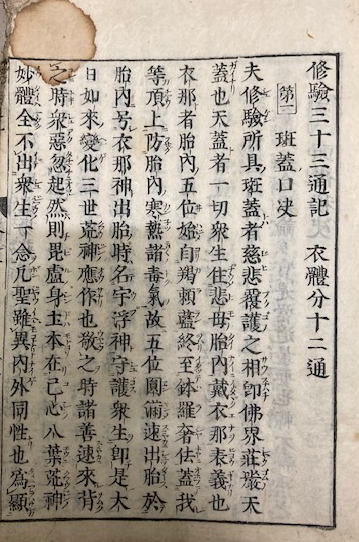 修驗三十三通記 衣體分十二通
第一 班蓋口决
夫修驗所具班蓋者慈悲覆護之相卽佛界莊嚴天
蓋也天蓋者一切衆生住悲母胎內戴衣那表義也
衣那者胎內五位始自羯賴藍終至鉢羅奢佉蓋我
等頂上防胎內寒熱諸毒氣故五位圓滿速出胎於
胎內号衣那神出胎時名宇浮神守護衆生卽是大
日如來變化三世荒神應作也敬之時諸善速來背
之時衆惡忽起然則毘盧身土本在己心八葉荒神
妙體全不出衆生一念凡聖雖異內外同性也爲顯